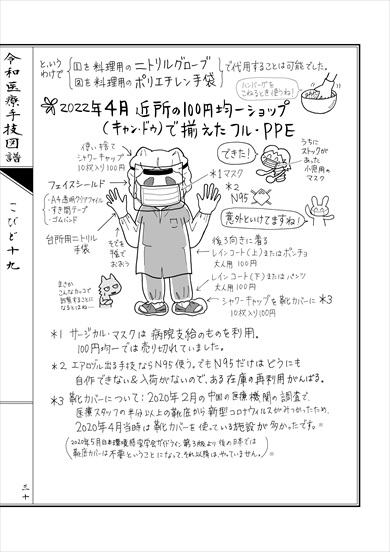 令和医療手技図譜
こびど十九
三十
というわけで
①を料理用のニトリルグローブ
②を料理用のポリエチレン手袋
で代用することは可能でした。
ハンバーグをこねるとき使うね!
2022年4月 近所の100円均一ショップ
(キャン・ドゥ)で揃えたフル・PPE
使い捨て
シャワーキャップ
10枚入り100円
できた!
うちに
ストックが
あった
小児用の
マスク
フェイスシールド
・A4透明クリアファイル
・すき間テープ
・ゴムバンド
*1 マスク
*2
N95
意外といけてますね!
台所用ニトリル
手袋
そでを
手袋で
おおう
後ろ向きに着る
レインコート(上)またはポンチョ
大人用 100円
レインコート(下)またはパンツ
大人用 100円
シャワーキャップを靴カバーに *3
10枚入り100円
まさか
こんなカッコで
診察することに
なるとはね…
*1 サージカル・マスクは病院支給のものを利用。
100円均一では売り切れていました。
*2 エアロゾル出る手技ならN95使う。でもN95だけはどうにも
自作できない&入荷がないので、ある在庫の再利用がんばる。
*3 靴カバーについて:2020年2月の中国の医療機関の調査で、
医療スタッフの半分以上の靴底から新型コロナウイルスがみつかったため、
2020年4月当時は靴カバーを使っている施設が多かったです。
(2020年5月日本環境感染学会ガイドライン第3版より後の日本では
靴カバーは不要ということになって、それ以降は、やっていません。)